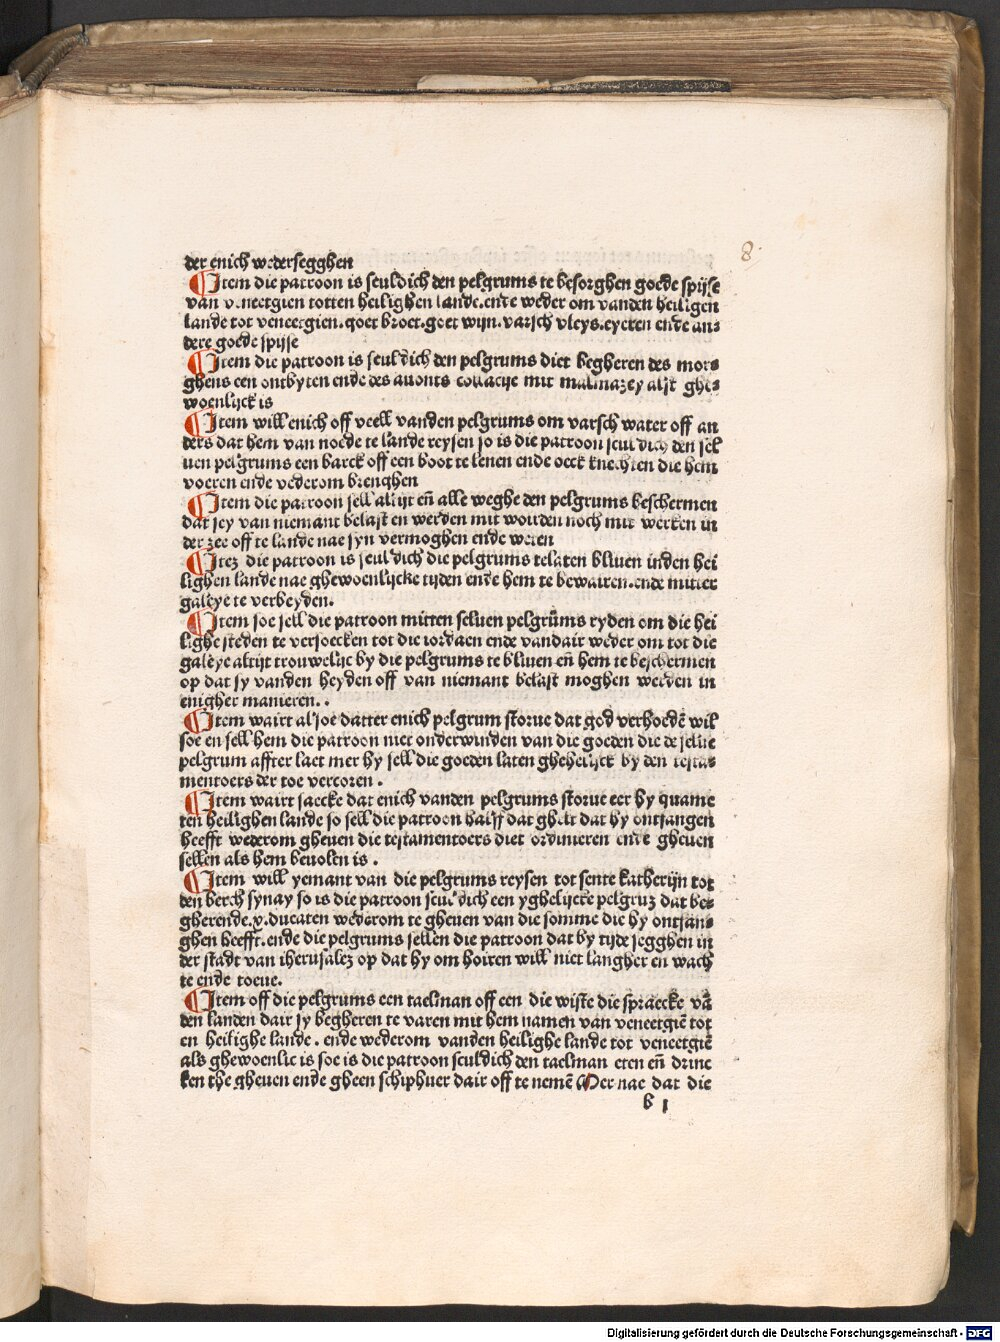 8.
der enich wedersegghen
¶ Item die patroon is sculdich den pelgrums te besorghen goede spijse
van veneetgien totten heilighen lande.ende weder om vanden heiligen
lande tot veneetgien.goet broet.goet wijn.varsch vleys.eyeren ende an⸗
dere goede spijse
¶ Item die patroon is sculdich den pelgrums diet begheren des mor⸗
ghens een ontbyten ende des auonts collacije mit malmazey alst ghe⸗
woenlijck is
¶ Item will enich off veell vanden pelgrums om varsch water off an
ders dat hem van noede te lande reysen so is die patroon sculdich den sel
uen pelgrums een barck off een boot te lenen ende oeck knechten die hem
voeren ende vederom brenghen
¶ Item die patroon sell altijt eñ alle weghe den pelgrums beschermen
dat sey van niemant belast en werden mit worden noch mit werken in
der zee off te lande nae syn vermoghen ende weten
¶ Itez die patroon is sculdich die pelgrums telaten bliuen inden hei
lighen lande nae ghewoenlijcke tijden ende hem te bewairen.ende mitter
galeye te verbeyden.
¶ Item soe sell die patroon mitten seluen pelgrũms ryden om die hei
lighe steden te versoecken tot die iordaen ende vandair weder om tot die
galeye altijt trouwelijc by die pelgrums te bliuen eñ hem te beschermen
op dat sy vanden heyden off van niemant belast moghen werden in
enigher manieren. .
¶ Item wairt alsoe datter enich pelgrum storue dat god verhoedē wil
soe en sell hem die patroon niet onderwinden van die goeden die de selue
pelgrum affter laet mer hy sell die goeden laten ghehelijck by den testa⸗
mentoers der toe vercoren .
¶ Item wairt saecke dat enich vanden pelgrums storue eer hy quame
ten heilighen lande so sell die patroon halff dat ghelt dat hy ontfangen
heefft wederom gheuen die testamentoers diet ordinieren ende gheuen
sellen als hem beuolen is .
¶ Item will yemant van die pelgrums reysen tot sente katherijn tot
den berch synay so is die patroon sculdich een yghelijcke pelgruz dat be⸗
gherende.x.ducaten wederom te gheuen van die somme die hy ontfan⸗
ghen heefft.ende die pelgrums sellen die patroon dat by tijde segghen in
der stadt van iherusalez op dat hy om hoiren will niet langher en wach
te ende toeue.
¶ Item off die pelgrums een taelman off een die wiste die spraecke vā
den landen dair sy begheren te varen mit hem namen van veneetgiē tot
en heilighe lande . ende wederom vanden heilighe lande tot veneetgiē
als ghewoenlic is soe is die patroon sculdich den taelman eten eñ drinc
ken the gheuen ende gheen schiphuer dair off te nemē Mer nae dat die
b 1
Digitalisierung gefördert durch die Deutsche Forschungsgemeinschaft - DFG